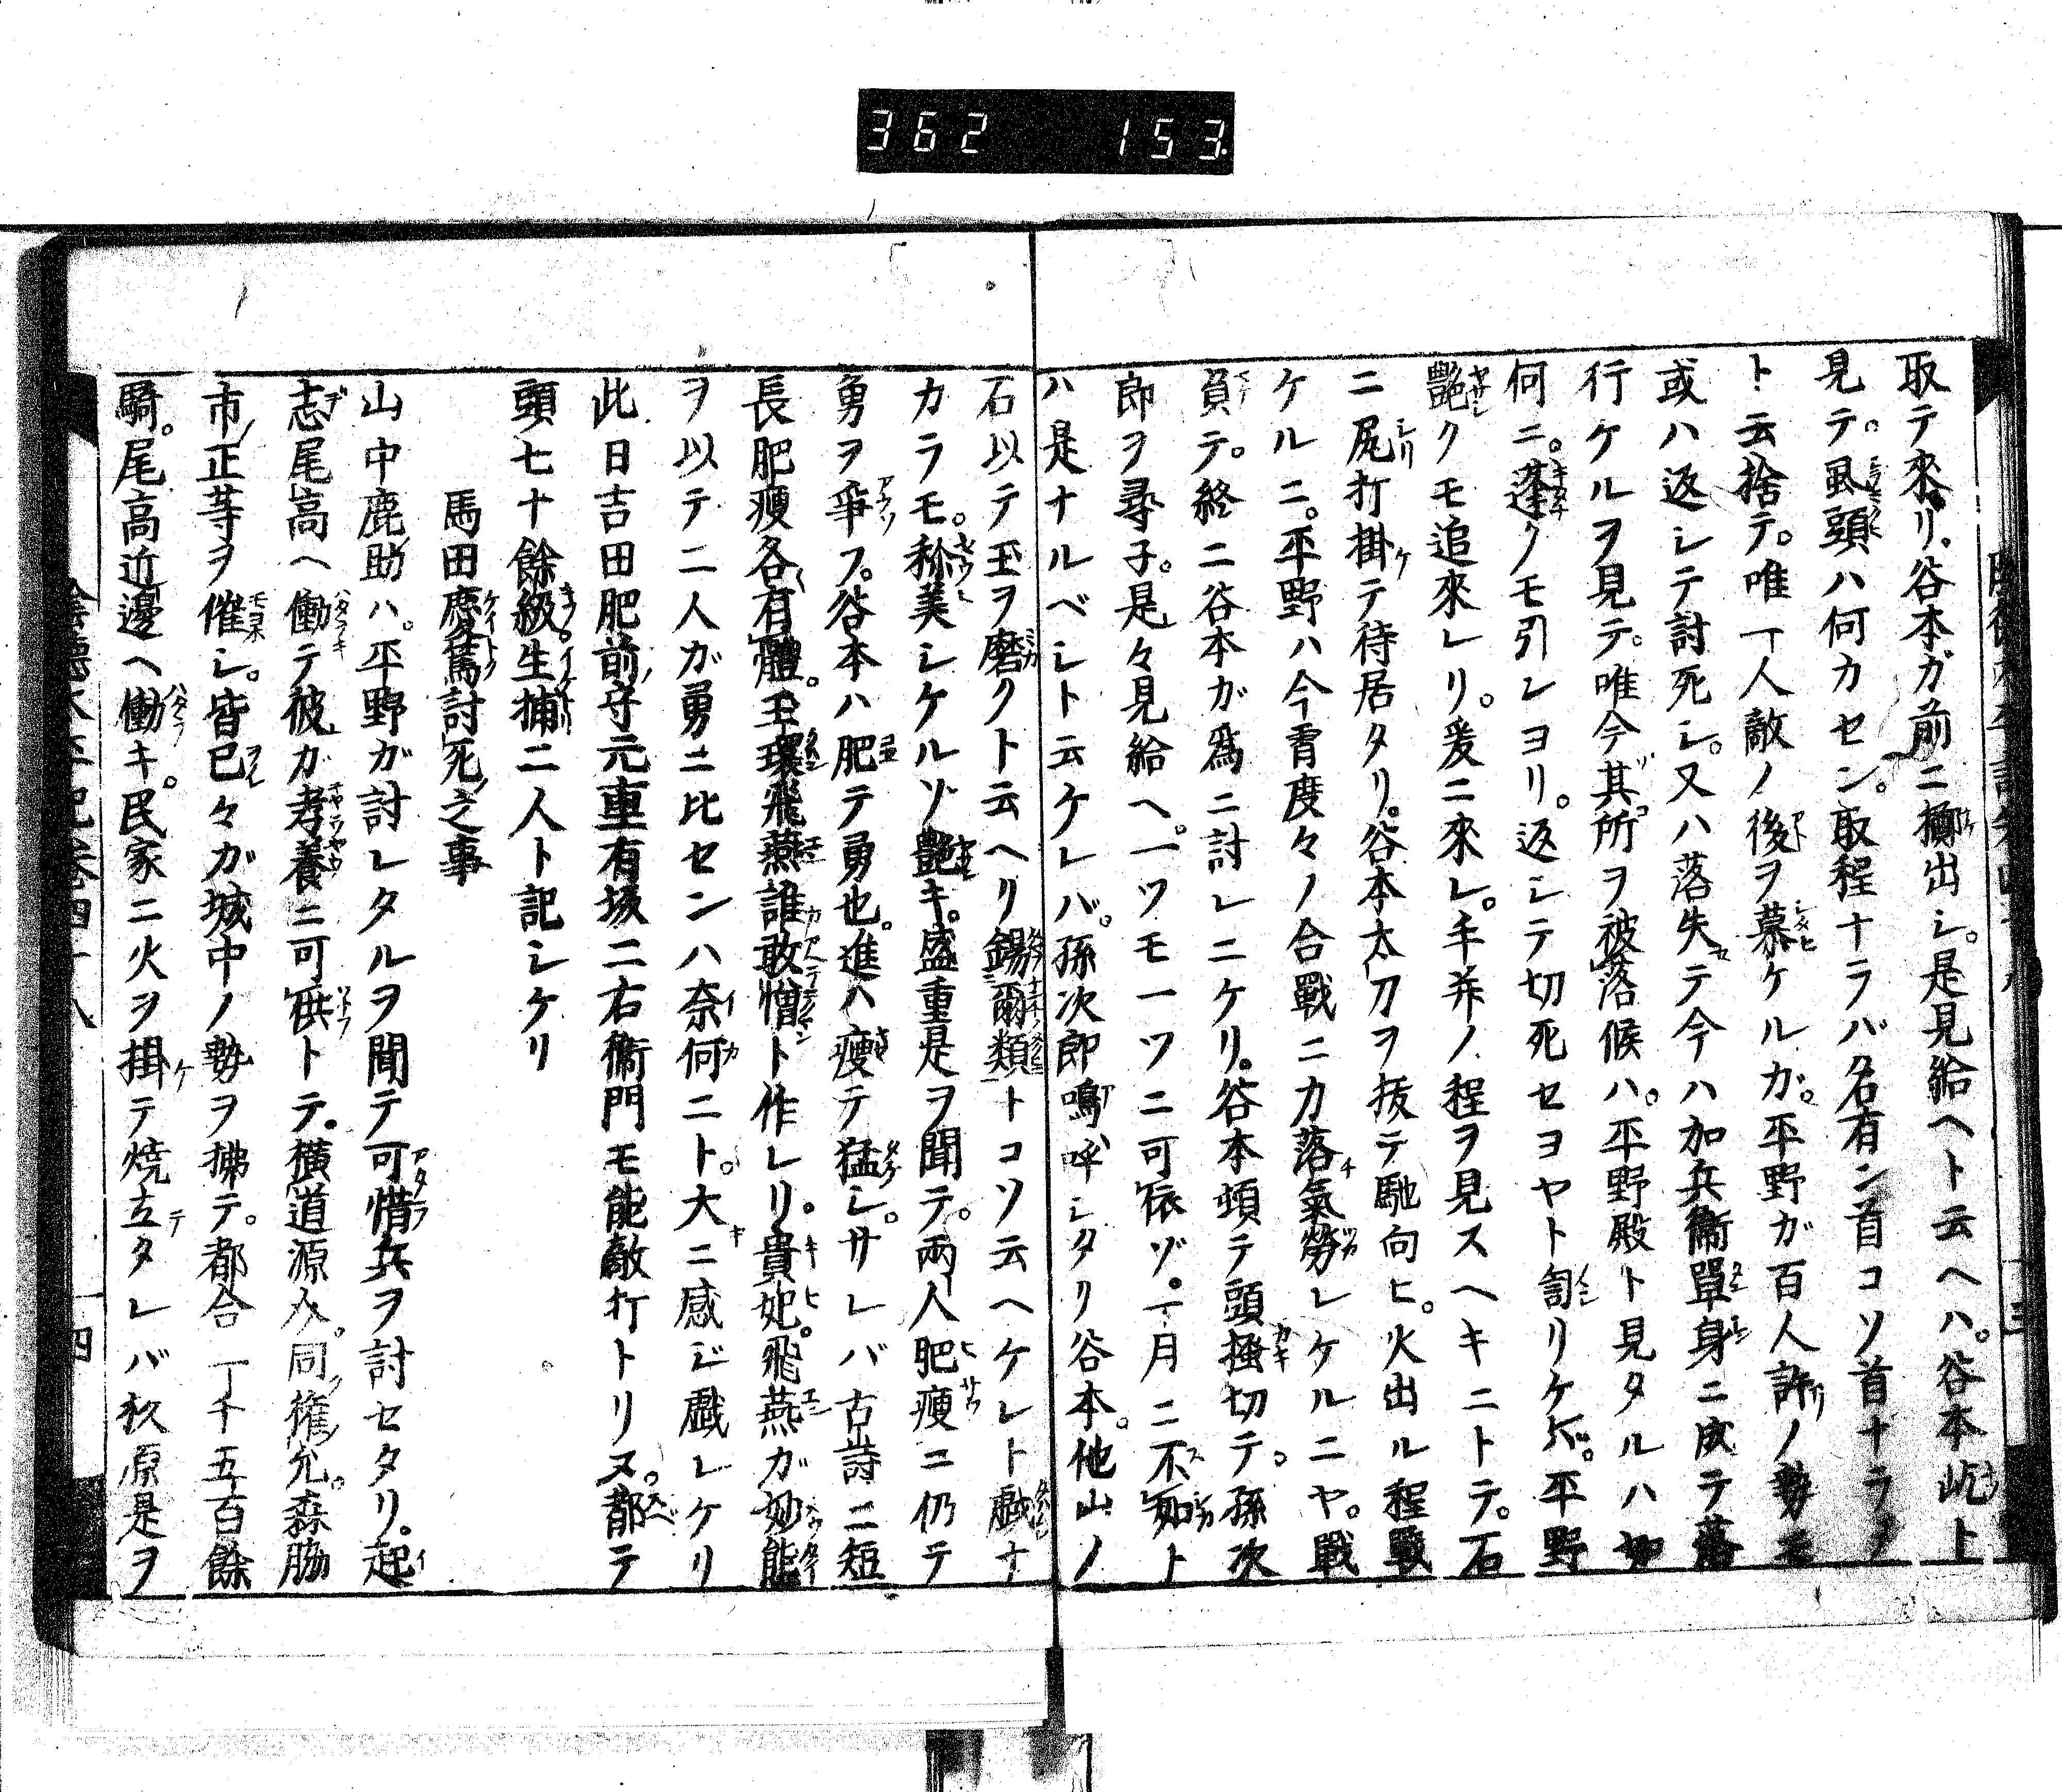 362 153
取テ來リ。谷本ガ前ニ擲出シ。是見給ヘト云ヘハ。谷本屹ト
見テ。虱頭ハ何カセン。取程ナラバ名有ン首コソ首ナラメ
ト云捨テ。唯一人敵ノ後ヲ慕ケルガ。平野ガ百人許ノ勢モ
或ハ返シテ討死シ。又ハ落失テ今ハ加兵衞單身ニ成テ落
行ケルヲ見テ。唯今其所ヲ被落候ハ。平野殿ト見タルハ如
何ニ。蓬クモ引レヨリ。返シテ切死セヨヤト訇リケレバ。平野
艷クモ追來レリ。爰ニ來レ。手并ノ程ヲ見スヘキニトテ。石
ニ尻打掛テ待居タリ。谷本太刀ヲ拔テ馳向ヒ。火出ル程戰
ケルニ。平野ハ今宵度々ノ合戰ニ力落氣勞レケルニヤ。戰
負テ。終ニ谷本ガ爲ニ討レニケリ。谷本頓テ頭搔切テ。孫次
郎ヲ尋子。是々見給ヘ。一ツモ一ツニ可依ゾ。一月ニ不如ト
ハ是ナルベシト云ケレバ。孫次郎嗚呼シタリ谷本。他山ノ
石以テ玉ヲ磨クト云ヘリ錫爾類トコソ云ヘケレト戯ナ
カラモ。稱美シケルゾ艷キ。盛重是ヲ聞テ。兩人肥瘦ニ仍テ
勇ヲ爭フ。谷本ハ肥テ勇也。進ハ瘦テ猛シ。サレバ古詩ニ短
長肥瘦各有體。玉環飛燕誰敢憎ト作レリ。貴妃。飛燕ガ妙能
ヲ以テ二人ガ勇ニ比センハ奈何ニト。大ニ感ジ戯レケリ
此日吉田肥前守元重有坂二右衞門モ能敵打トリヌ。都テ
頭七十餘級。生捕二人ト記シケリ
馬田慶篤討死之事
山中鹿助ハ。平野ガ討レタルヲ聞テ可惜兵ヲ討セタリ。起
志尾高ヘ働テ彼カ孝養ニ可供トテ。橫道源介。同權允。森脇
市正等ヲ催シ。皆已々ガ城中ノ勢ヲ拂テ。都合一千五百餘
騎。尾高近邊ヘ働キ。民家ニ火ヲ掛テ燒立タレバ杉原是ヲ